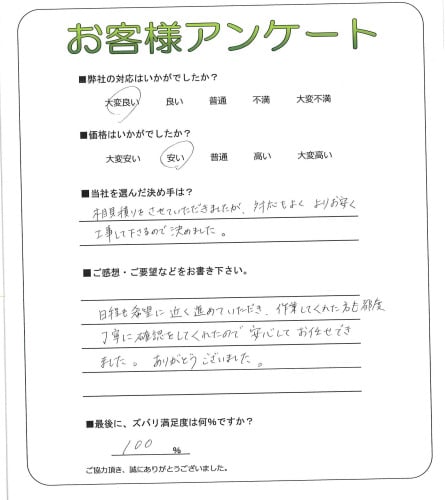 お客様アンケート
■弊社の対応はいかがでしたか？
大変良い 良い 普通 不満 大変不満
■価格はいかがでしたか？
大変安い 安い 普通 高い 大変高い
■当社を選んだ決め手は？
相見積りをさせていただきましたが、対応もよく よりお安く
工事して下さるので決めました。
■ご感想・ご要望などをお書き下さい。
日程も希望に近く進めていただき、作業してくれた方も都度
丁寧に確認をしてくれたので安心してお任せでき
ました。ありがとうございました。
■最後に、ズバリ満足度は何％ですか？
100 ％
ご協力頂き、誠にありがとうございました。